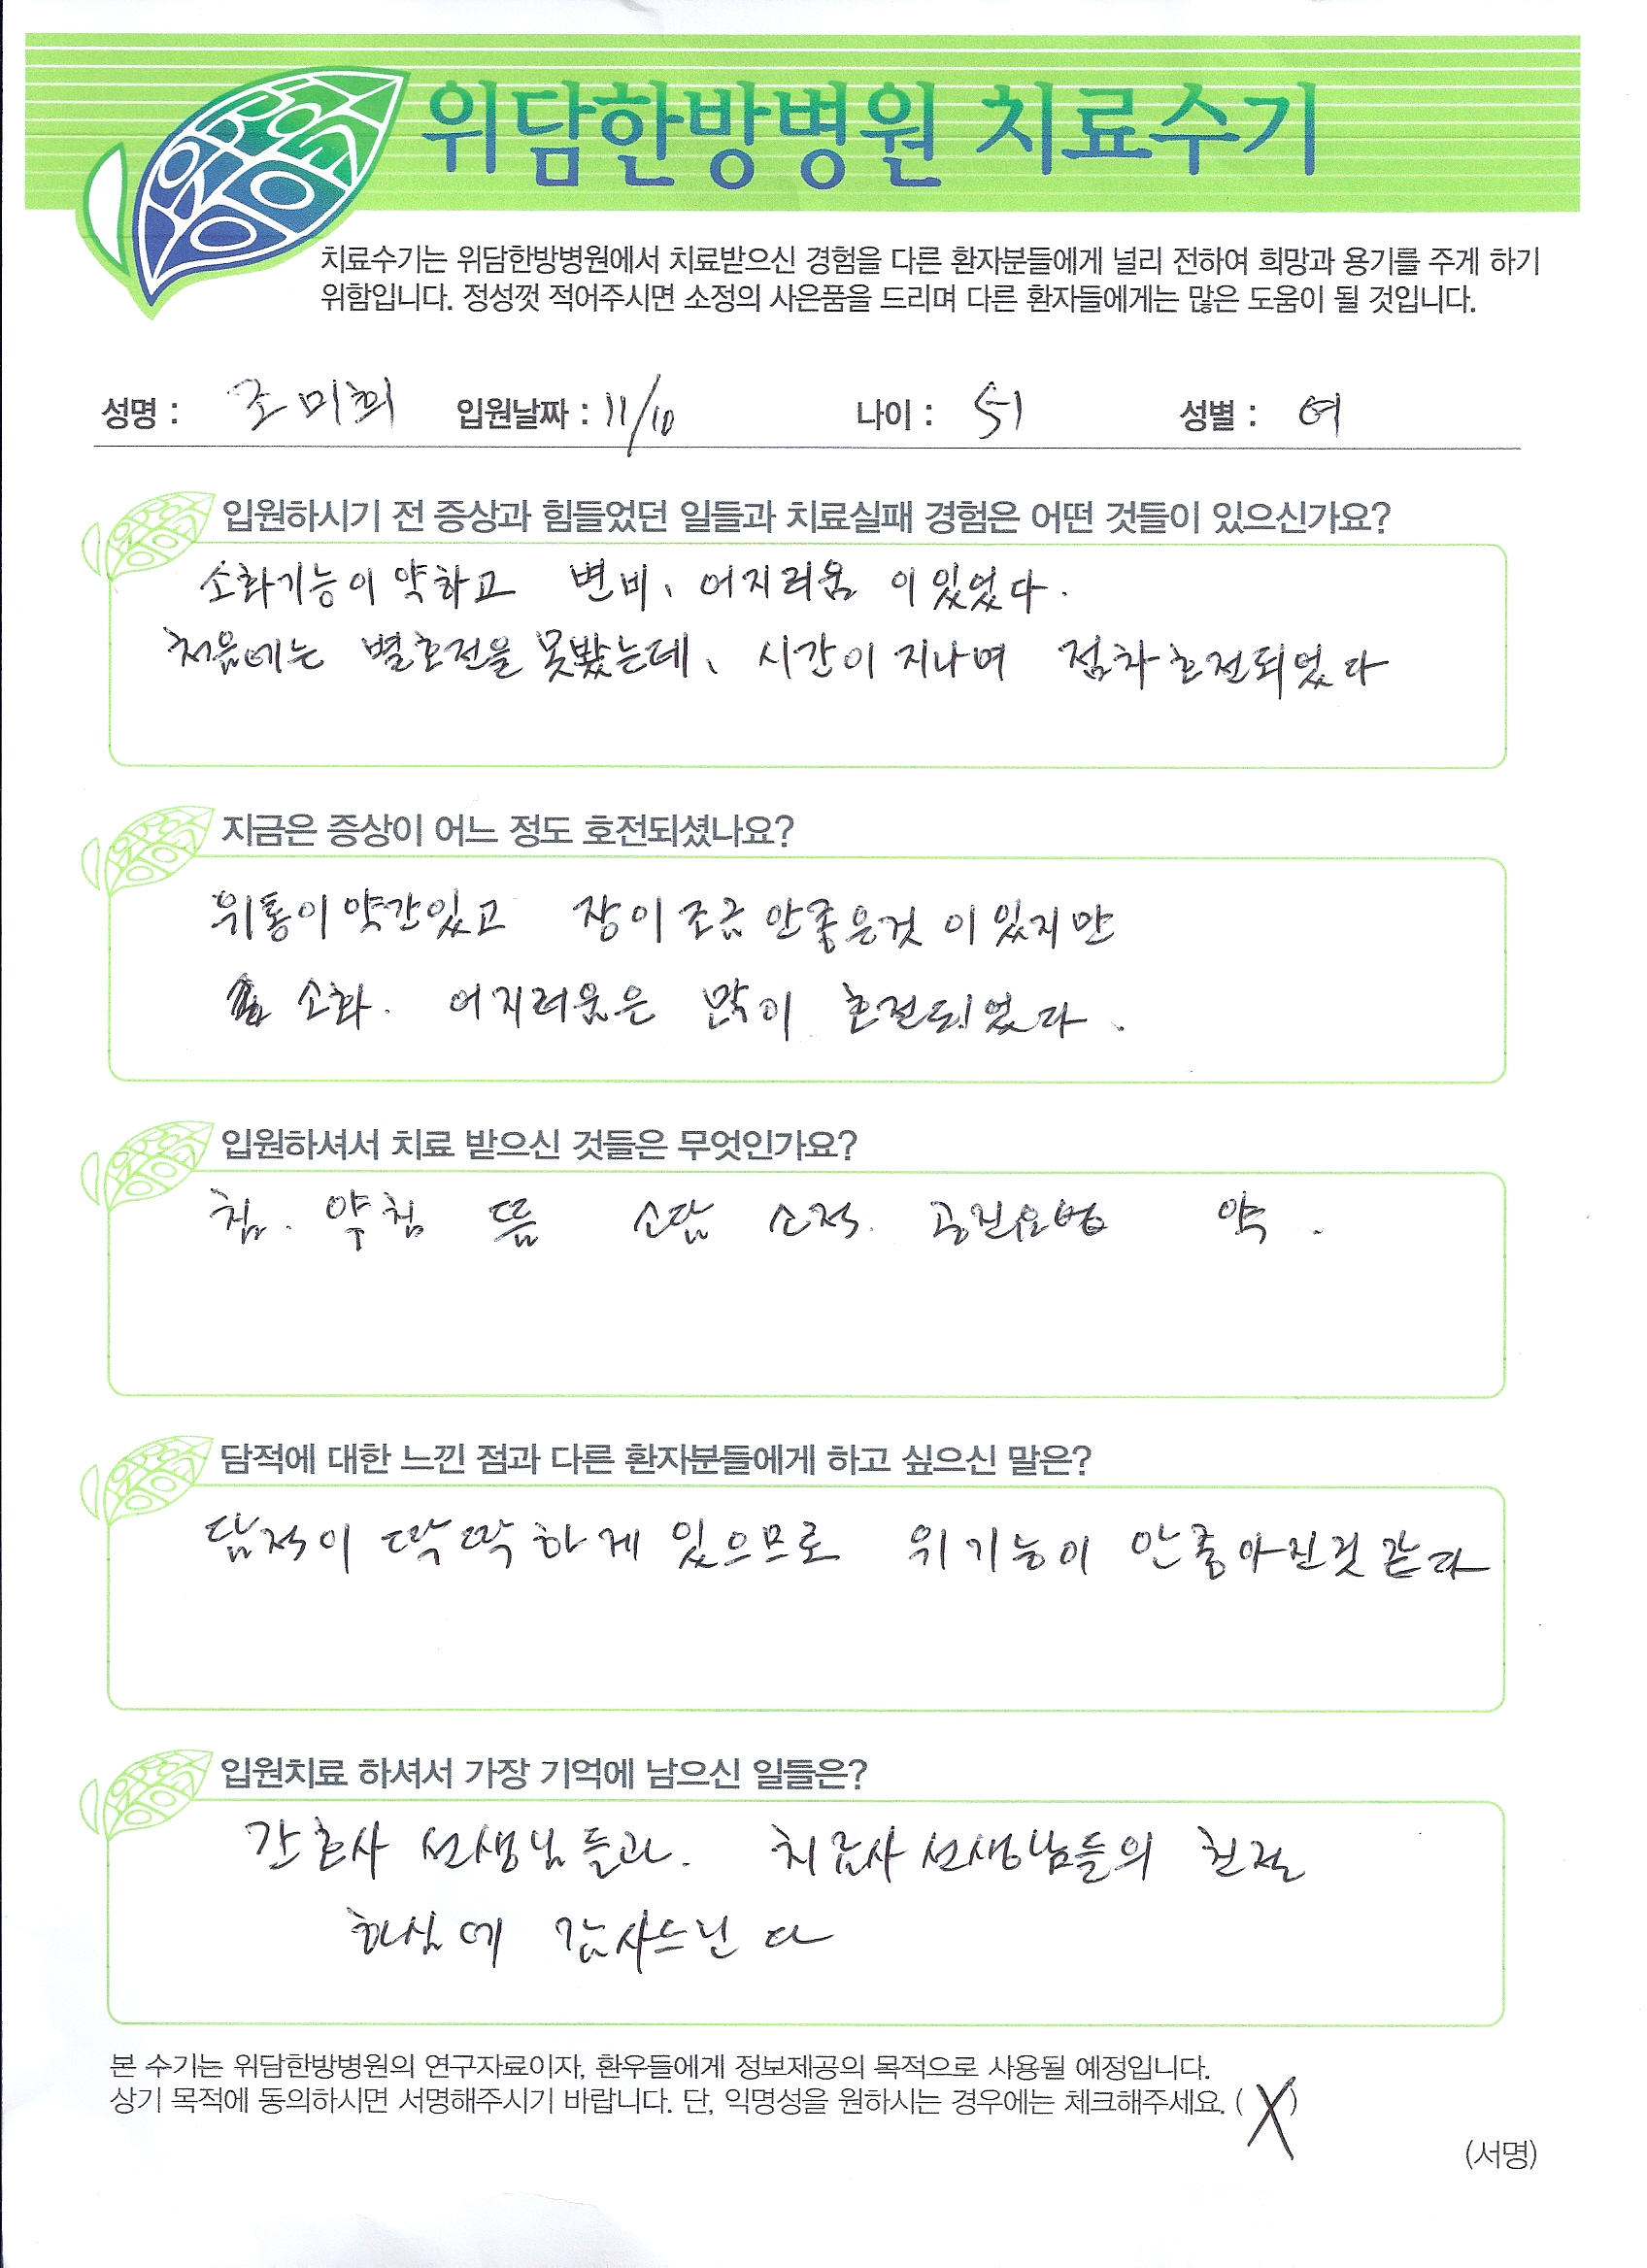 위담한방병원 치료수기
치료수기는 위담한방병원에서 치료받으신 경험을 다른 환자분들에게 널리 전하여 희망과 용기를 주게 하기
위함입니다. 정성껏 적어주시면 소정의 사은품을 드리며 다른 환자들에게는 많은 도움이 될 것입니다.
성명 : 조미희 입원날짜 : 11/10 나이 : 51 성별 : 여
입원하시기 전 증상과 힘들었던 일들과 치료실패 경험은 어떤 것들이 있으신가요?
소화기능이 약하고 변비, 어지러움 이 있었다.
처음에는 별호전을 못봤는데, 시간이 지나며 점차 호전되었다
지금은 증상이 어느 정도 호전되셨나요?
위통이 약간있고 장이 조금 안좋은것 이 있지만
소화. 어지러움은 많이 호전되었다.
입원하셔서 치료 받으신 것들은 무엇인가요?
침. 약침 뜸 소담 소적. 공진요법 약.
담적에 대한 느낀 점과 다른 환자분들에게 하고 싶으신 말은?
담적이 딱딱하게 있으므로 위기능이 안좋아진것 같다
입원치료 하셔서 가장 기억에 남으신 일들은?
간호사 선생님들과. 치료사 선생님들의 친절
하심에 감사드린다
본 수기는 위담한방병원의 연구자료이자, 환우들에게 정보제공의 목적으로 사용될 예정입니다.
상기 목적에 동의하시면 서명해주시기 바랍니다. 단, 익명성을 원하시는 경우에는 체크해주세요. (X)
(서명)